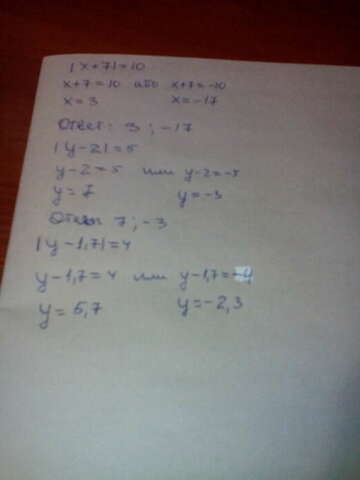 |x+7|=10
x+7=10 або x+7=-10
x=3 x=-17
Ответ: 3; -17
|y-2|=5
y-2=5 или y-2=-5
y=7 y=-3
Ответ 7; -3
|y-1,7|=4
y-1,7=4 или y-1,7=-4
y=5,7 y=-2,3